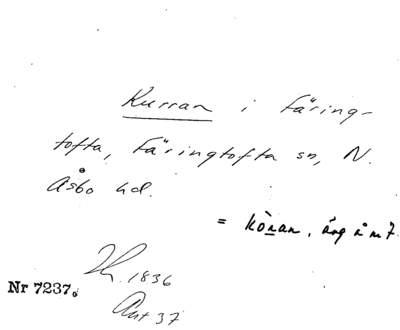 Kurran i Färing-
tofta, Färingtofta sn, N.
Åsbo hd.
= Köran, äng å nr 7.
1836
Nr 7237.
Ant 37